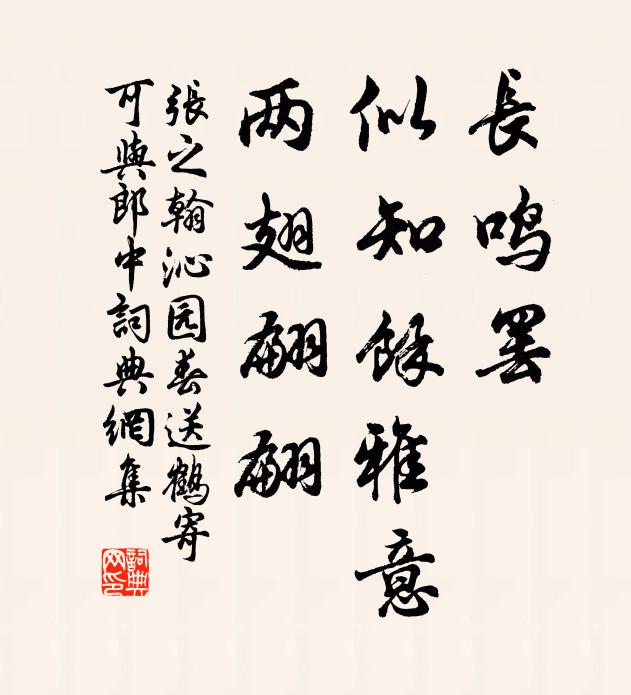 長鸣罢
似知餘雅意
两翅翩翩
張之翰沁园春送鶴寄
可與郎中詞典網集
詞典网印